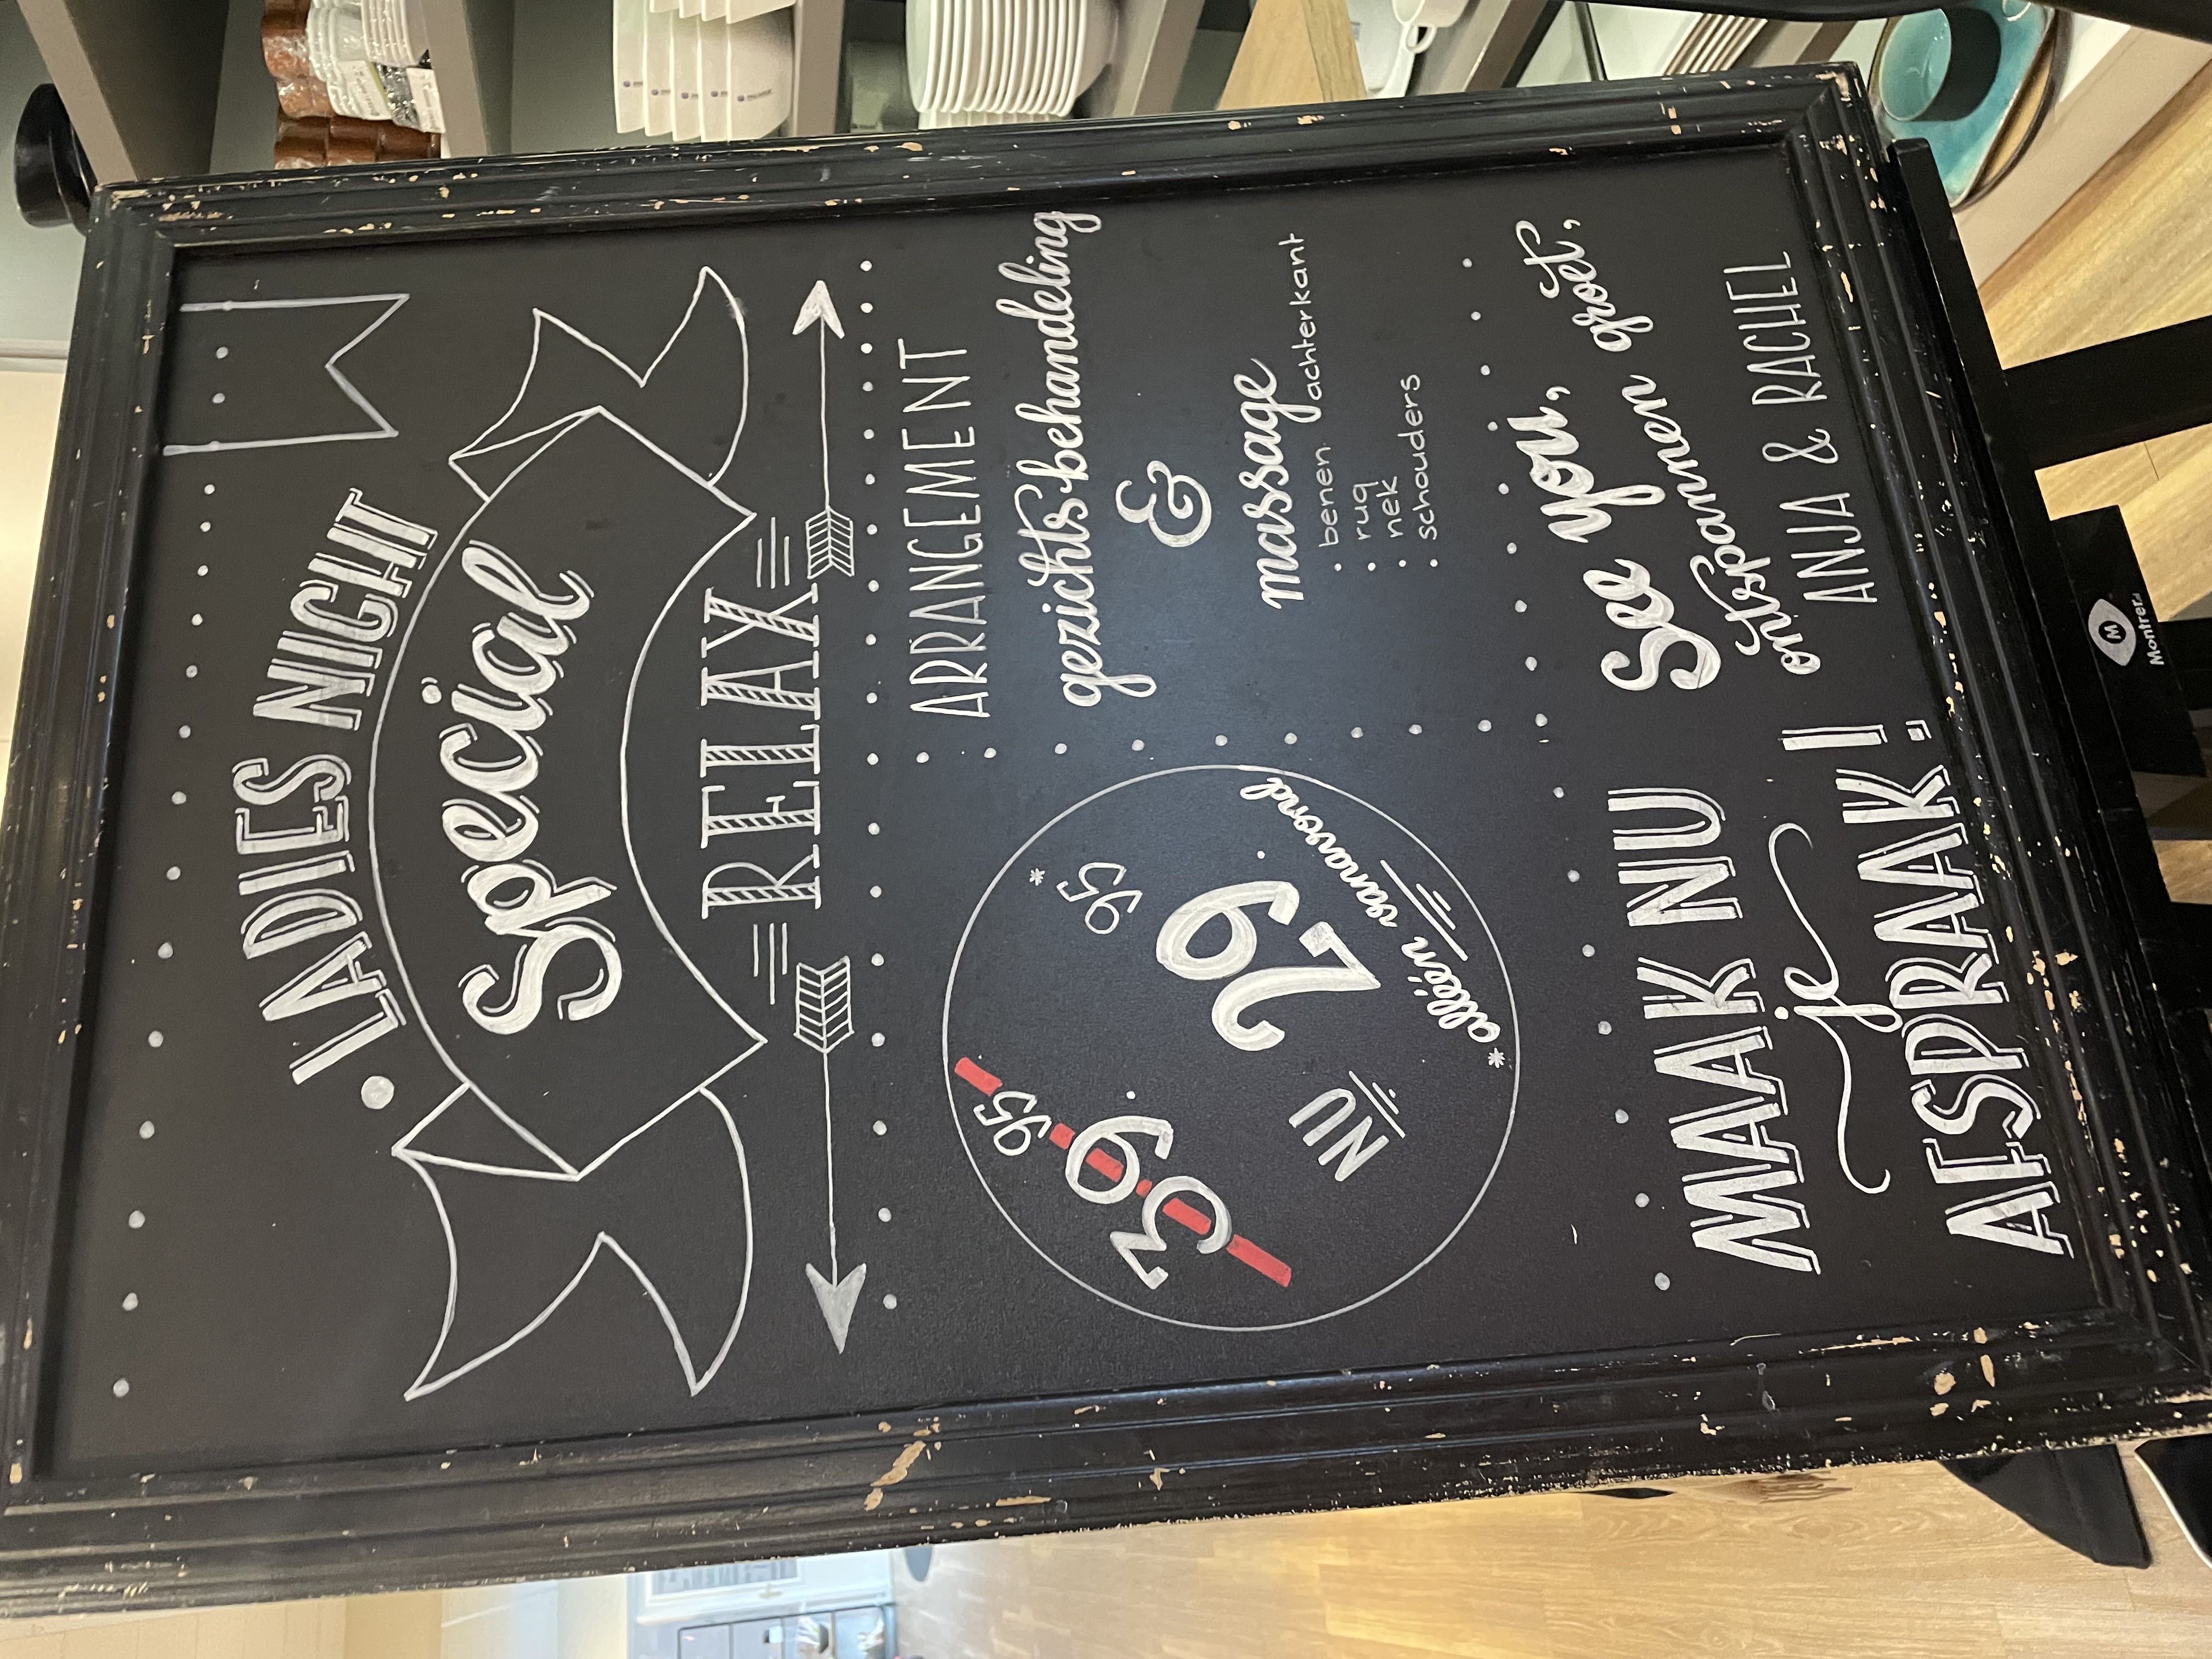 LADIES NIGHT
Special
RELAX
ARRANGEMENT
gezichtsbehandeling
&
massage
• benen achterkant
• rug
• nek
• schouders
39.95
NU
29.95*
*alléén vanavond
MAAK NU
je
AFSPRAAK!
See you,
ontspannen groet,
ANJA & RACHEL
M
Montrer.nl